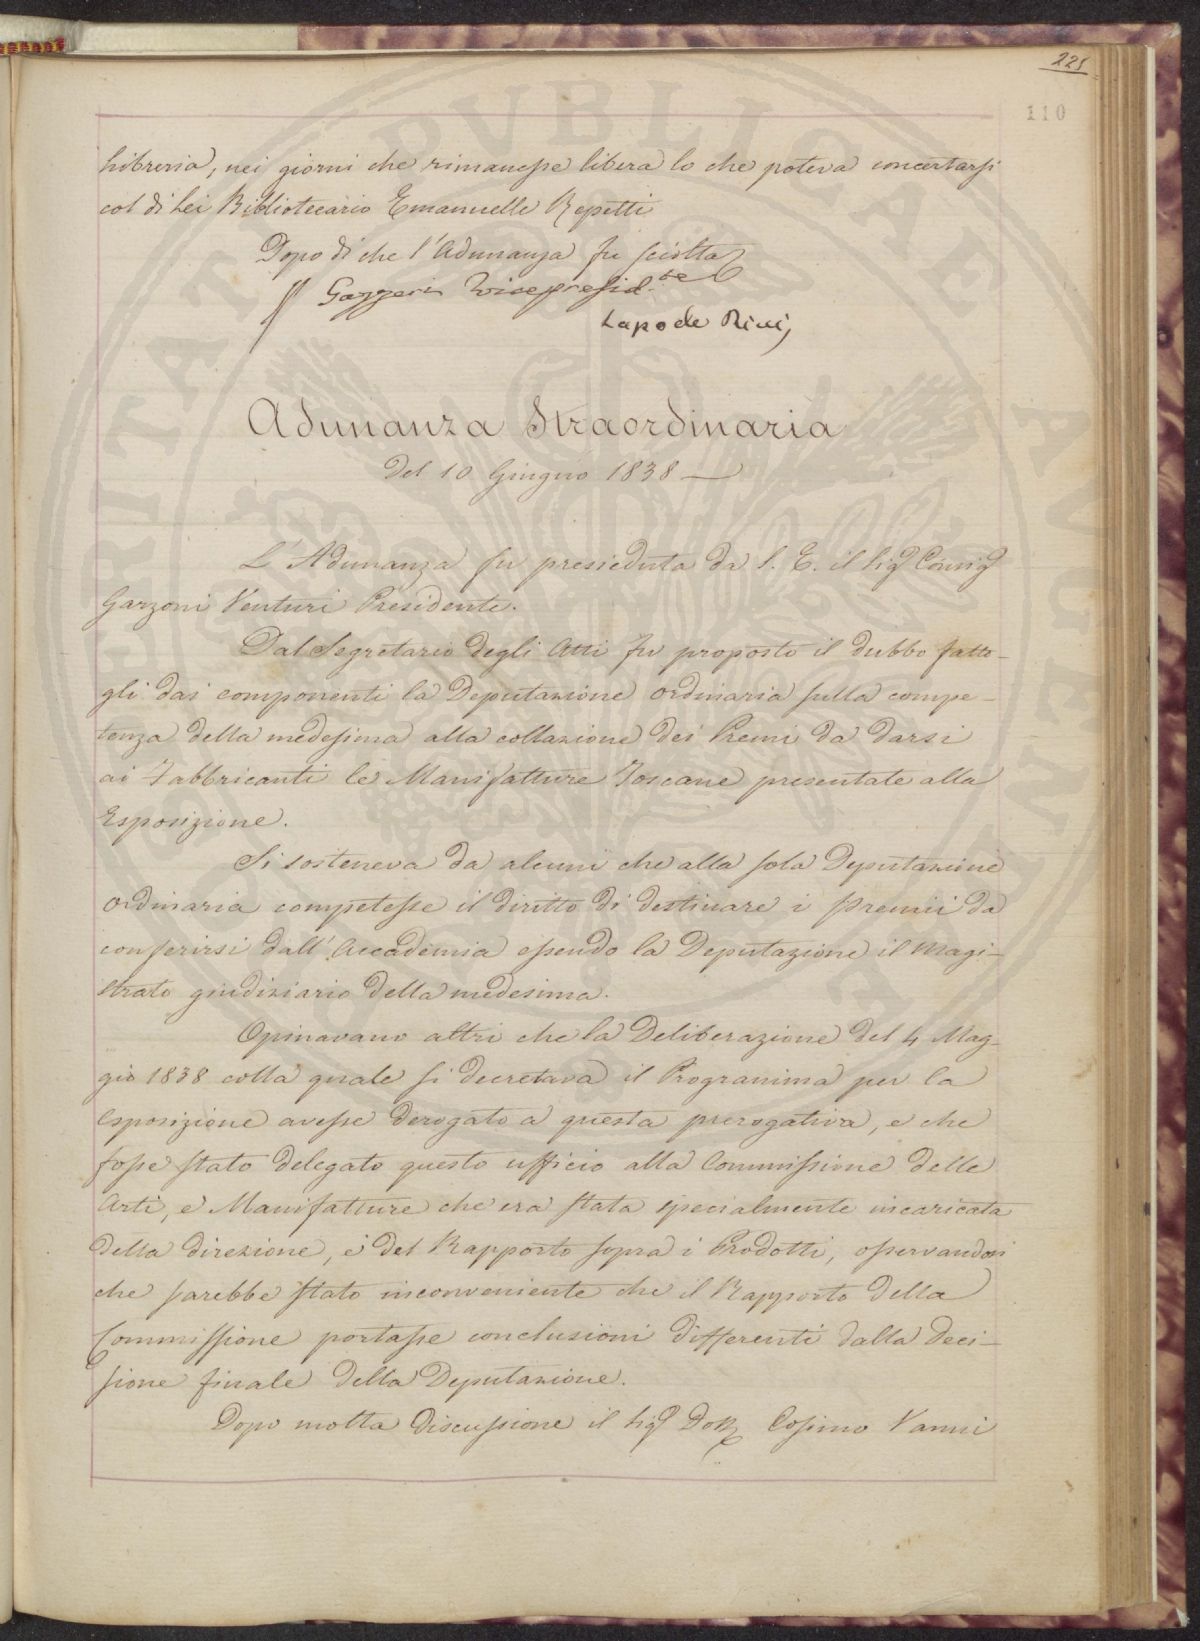 221
110
Libreria, nei giorni che rimanesse libera lo che poteva concertarsi
col di Lei Bibliotecario Emanuelle Repetti
Dopo di che l'Adunanza fu sciolta
Gazzeri Vicepresid.te
Lapo de Ricci
Adunanza Straordinaria
Del 10 Giugno 1838
L'Adunanza fu presieduta da S. E. il Sig Consig
Garzoni Venturi Presidente.
Dal Segretario degli Atti fu proposto il dubbo fatto-
gli dai componenti la Deputazione ordinaria sulla compe-
tenza della medesima alla collazione dei Premi da darsi
ai Fabbricanti le Manifatture Toscane presentate alla
Esposizione.
Si sosteneva da alcuni che alla sola Deputazione
ordinaria competesse il diritto di destinare i premii da
conferirsi dall'Accademia essendo la Deputazione il Magi-
strato giudiziario della medesima.
Opinavano altri che la Deliberazione del 4 Mag-
gio 1838 colla quale si decretava il Programma per la
esposizione avesse derogato a questa prerogativa, e che
fosse stato delegato questo ufficio alla Commissione delle
Arti, e Manifatture che era stata specialmente incaricata
della direzione, e del Rapporto sopra i Prodotti, osservandosi
che sarebbe stato inconveniente che il Rapporto della
Commissione portasse conclusioni differenti dalla deci-
sione finale della Deputazione.
Dopo molta discussione il Sig Dott Cosimo Vanni